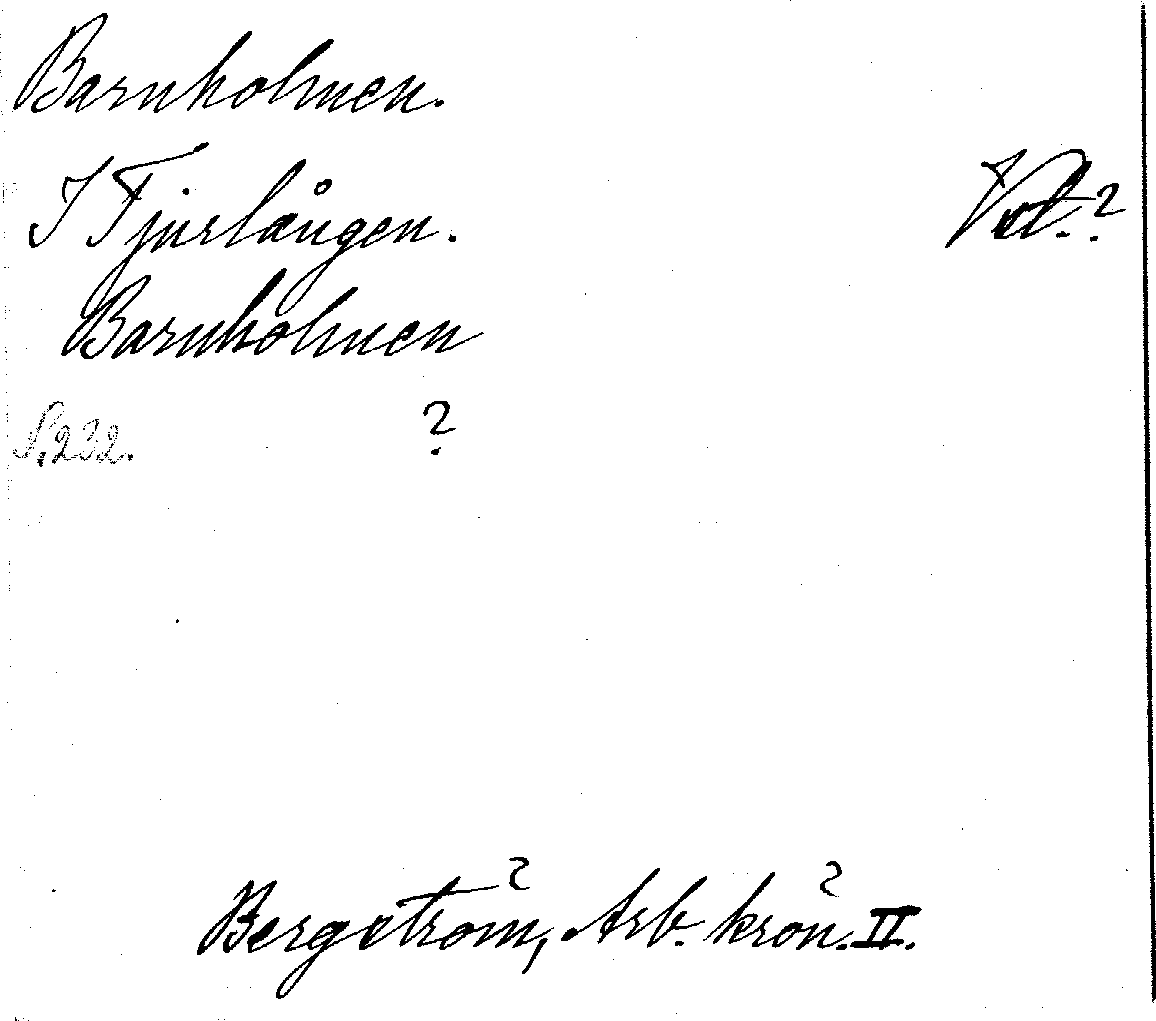 Barnholmen.
I Fjurlången.
Vbt.?
Barnholmen
S. 232. ?
Bergström, Arb. krön. II.